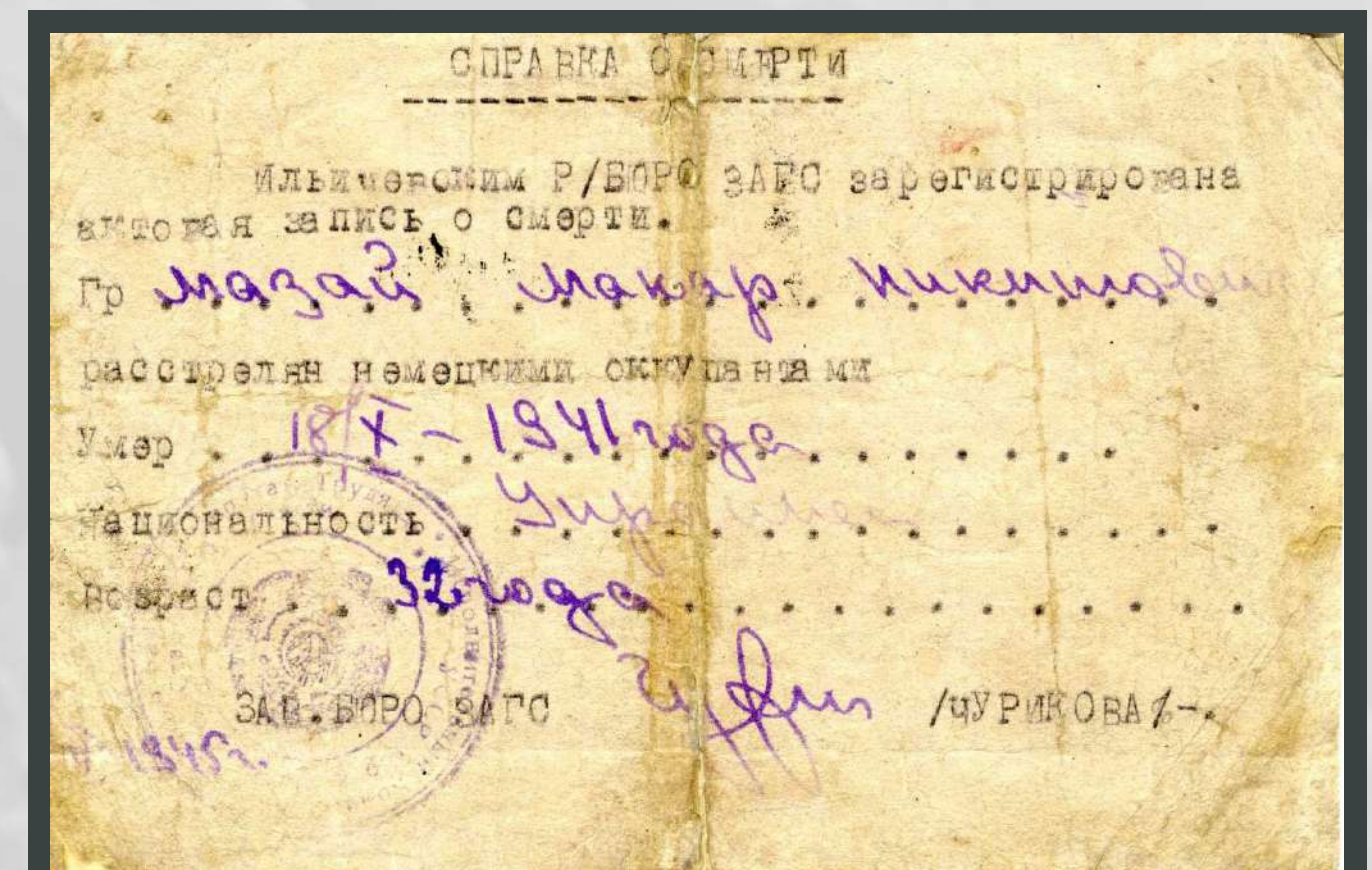 СПРАВКА О СМЕРТИ
Ильичевским Р/БЮРО ЗАГС зарегистрирована
актовая запись о смерти.
Гр Мазай Макар Никитович
расстрелян немецкими оккупантами
Умер 18/X - 1941 года
Национальность Украинец
Возраст 32 года
ЗАВ.БЮРО ЗАГС /ЧУРИКОВА/-.
1945г.